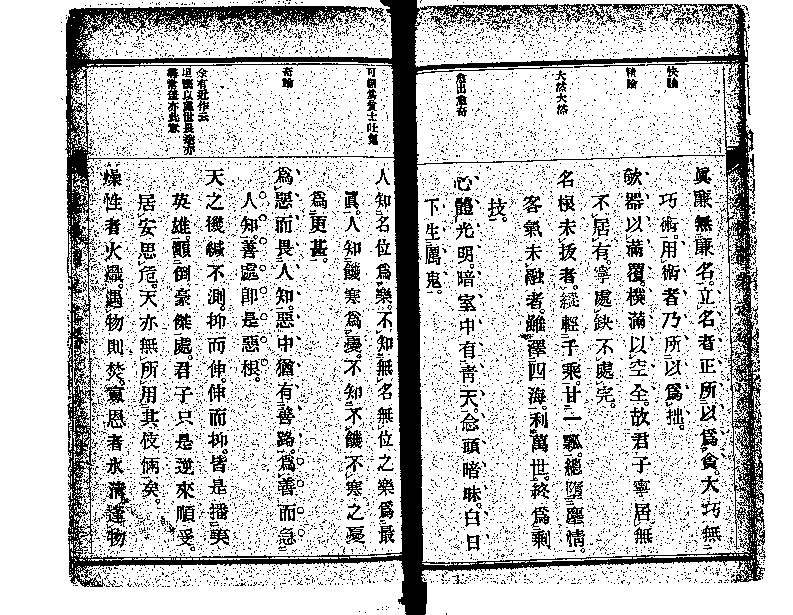 快論
快論
大然大然
愈出愈奇
眞廉無廉名。立名者正所以爲貪。大巧無
巧術。用術者乃所以爲拙。
欹器以滿覆。撲滿以空全。故君子寧居無
不居有。寧處缺不處完。
名根未拔者。縱輕千乘。甘一瓢。總墮塵情。
客氣未融者。雖澤四海。利萬世。終爲剩
技。
心體光明。暗室中有青天。念頭暗昧。白日
下生厲鬼。
奇論
人知名位爲樂。不知無名無位之樂爲最
眞。人知饑寒爲憂。不知不饑不寒之憂
爲更甚。
爲惡而畏人知。惡中猶有善路。爲善而急
人知。善處即是惡根。
天之機緘不測。抑而伸。伸而抑。皆是播弄
英雄。顚倒豪傑處。君子只是逆來順受。
居安思危。天亦無所用其伎倆矣。
燥性者火熾。遇物則焚。寡恩者氷淸。逢物